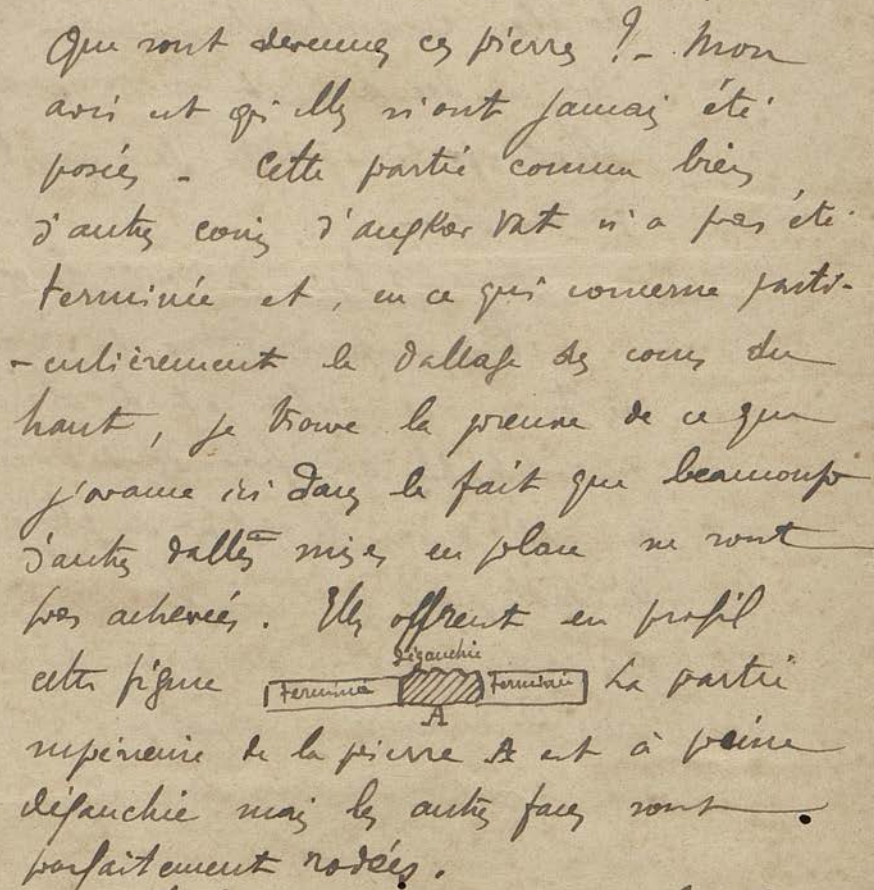 Que sont devenues ces pierres ? - Mon
avis est qu'elles n'ont jamais été
posées - Cette partie comme bien
d'autres coins d'Angkor Vat n'a pas été
terminée et, en ce qui concerne parti-
-culièrement le dallage des cours du
haut, je trouve la preuve de ce que
j'avance ici dans le fait que beaucoup
d'autres dalles mises en place ne sont
pas achevées. Elles offrent en profil
dégauchie
cette figure terminé terminée La partie
A
supérieure de la pierre A est à peine
dégauchie mais les autres faces sont
parfaitement rodées.